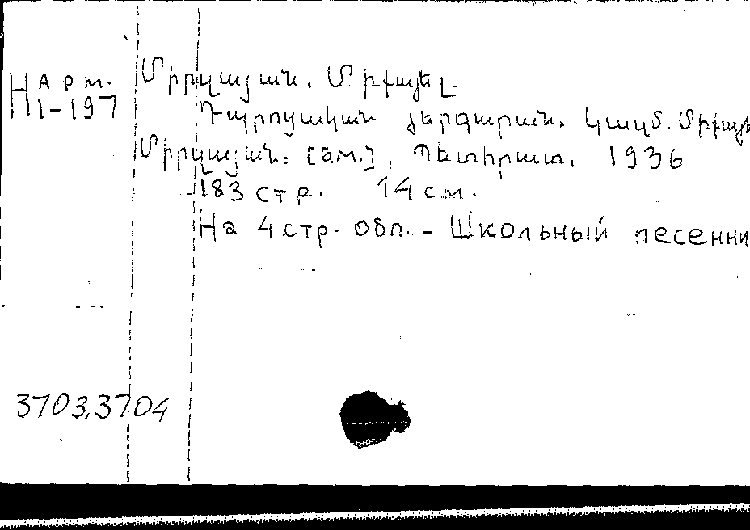 Н арм.
1-197
Միրզայան. Միքայել
Դպրոցական երգարան. Կազմ. Միքայել
Միրզայան. [Եж.], Պետհրատ. 1936
183 стр. 14 см.
На 4 стр. обл. - Школьный песенни
3703,3704